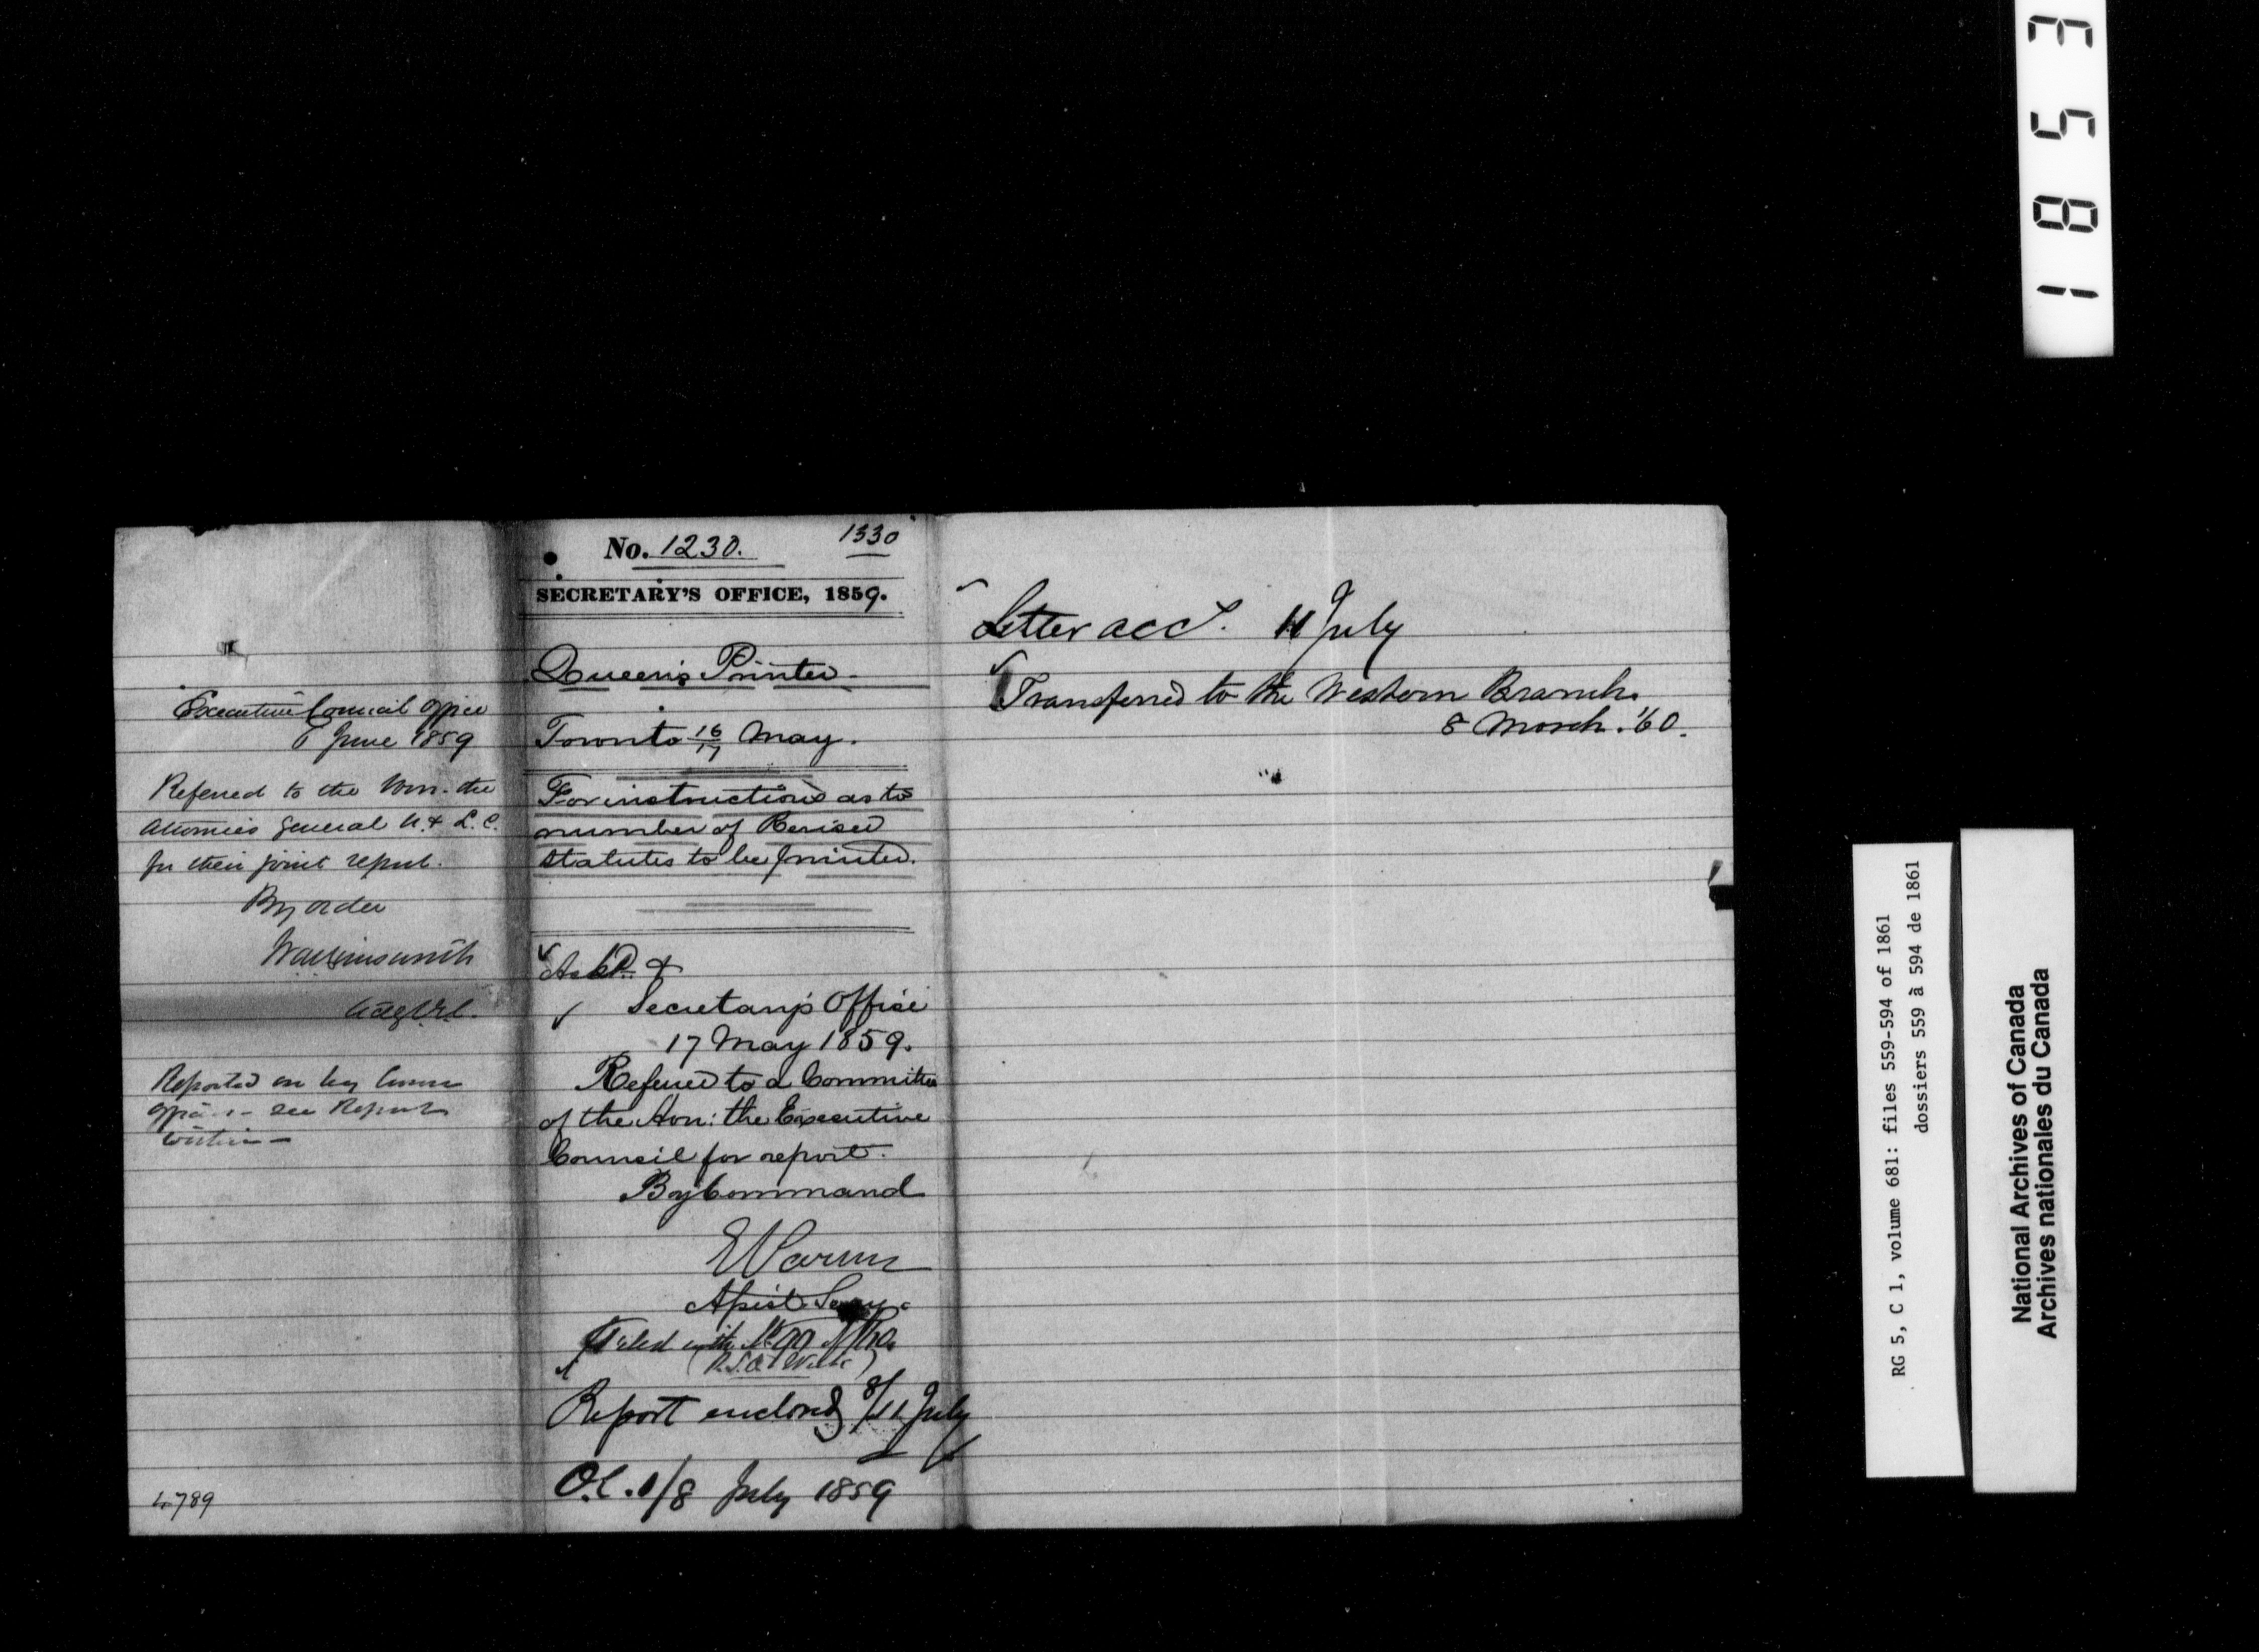 Executive Council Office
6 June 1859
Referred to the Hon. the
Attornies General U. & L. C.
for their joint report.
By order
Reported on by
see Report
within
4789
No. 1230.
1330
SECRETARY'S OFFICE, 1859.
Queen's Printer
Toronto 16/17 May.
For instructions as to
number of Revised
Statutes to be printed.
Ackd. &
Secretary's Office
17 May 1859.
Referred to a Committee
of the Hon: the Executive
Council for report.
By Command
E Parent
Assist. Secy.
Filed with
Report enclosed 8/11 July
O.C. 8 July 1859
Letter accd. 11 July
Transferred to the Western Branch.
8 March. '60.
1853
RG 5, C 1, volume 681: files 559-594 of 1861
dossiers 559 à 594 de 1861
National Archives of Canada
Archives nationales du Canada